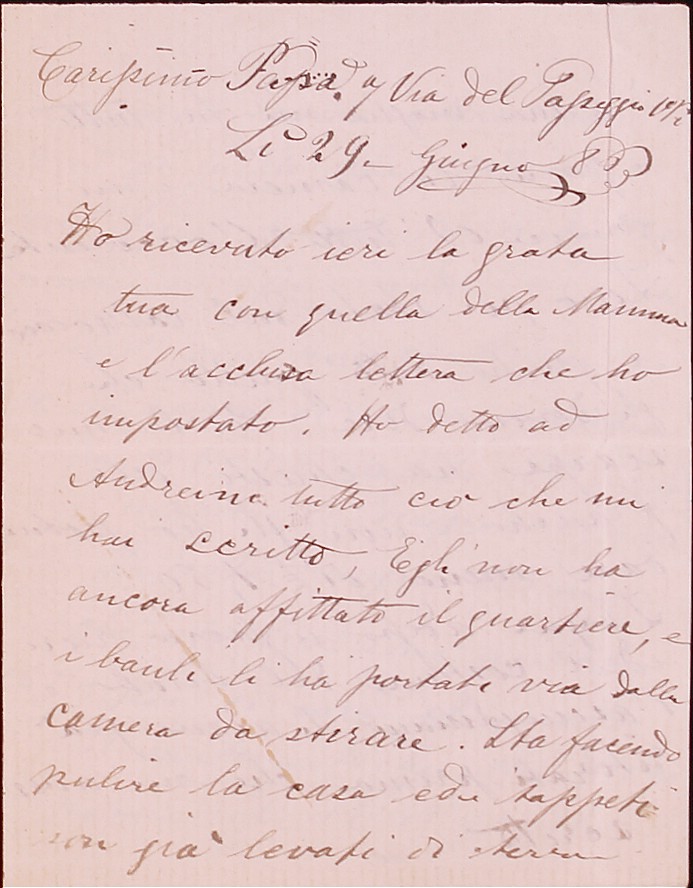 Carissimo Papà 7 Via del Passeggio
Li 29. Giugno 83
Ho ricevuto ieri la grata
tua con quella della Mamma
e l'acclusa lettera che ho
impostato. Ho detto ad
Andreine tutto ciò che mi
hai scritto, Egli non ha
ancora affittato il quartiere, e
i bauli li ha portati via dalla
camera da stirare. Sta facendo
pulire la casa ed i tappeti
son già levati di terra